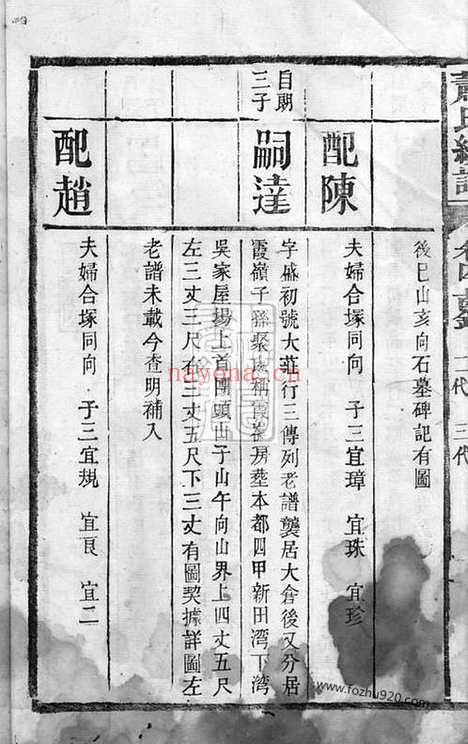 氏
二代 三代
後巳山亥向石墓碑記有圖
配陳
夫婦合塚同向 子三宜璋 宜珠 宜珍
自朝
三子
嗣達
字盛初號大莊行三傳列老譜襲居大倉後又分居
霞嶺子孫聚 稱霞 房葬本都四甲新田湾下湾
吳家屋場上首團頭山子山午向山界上四丈五尺
左三丈三尺右三丈五尺下三丈有圖契據詳圖左
老譜未載今查明補入
配趙
夫婦合塚同向 子三宜規 宜良 宜二
nayona.cn
www.fozhu920.com